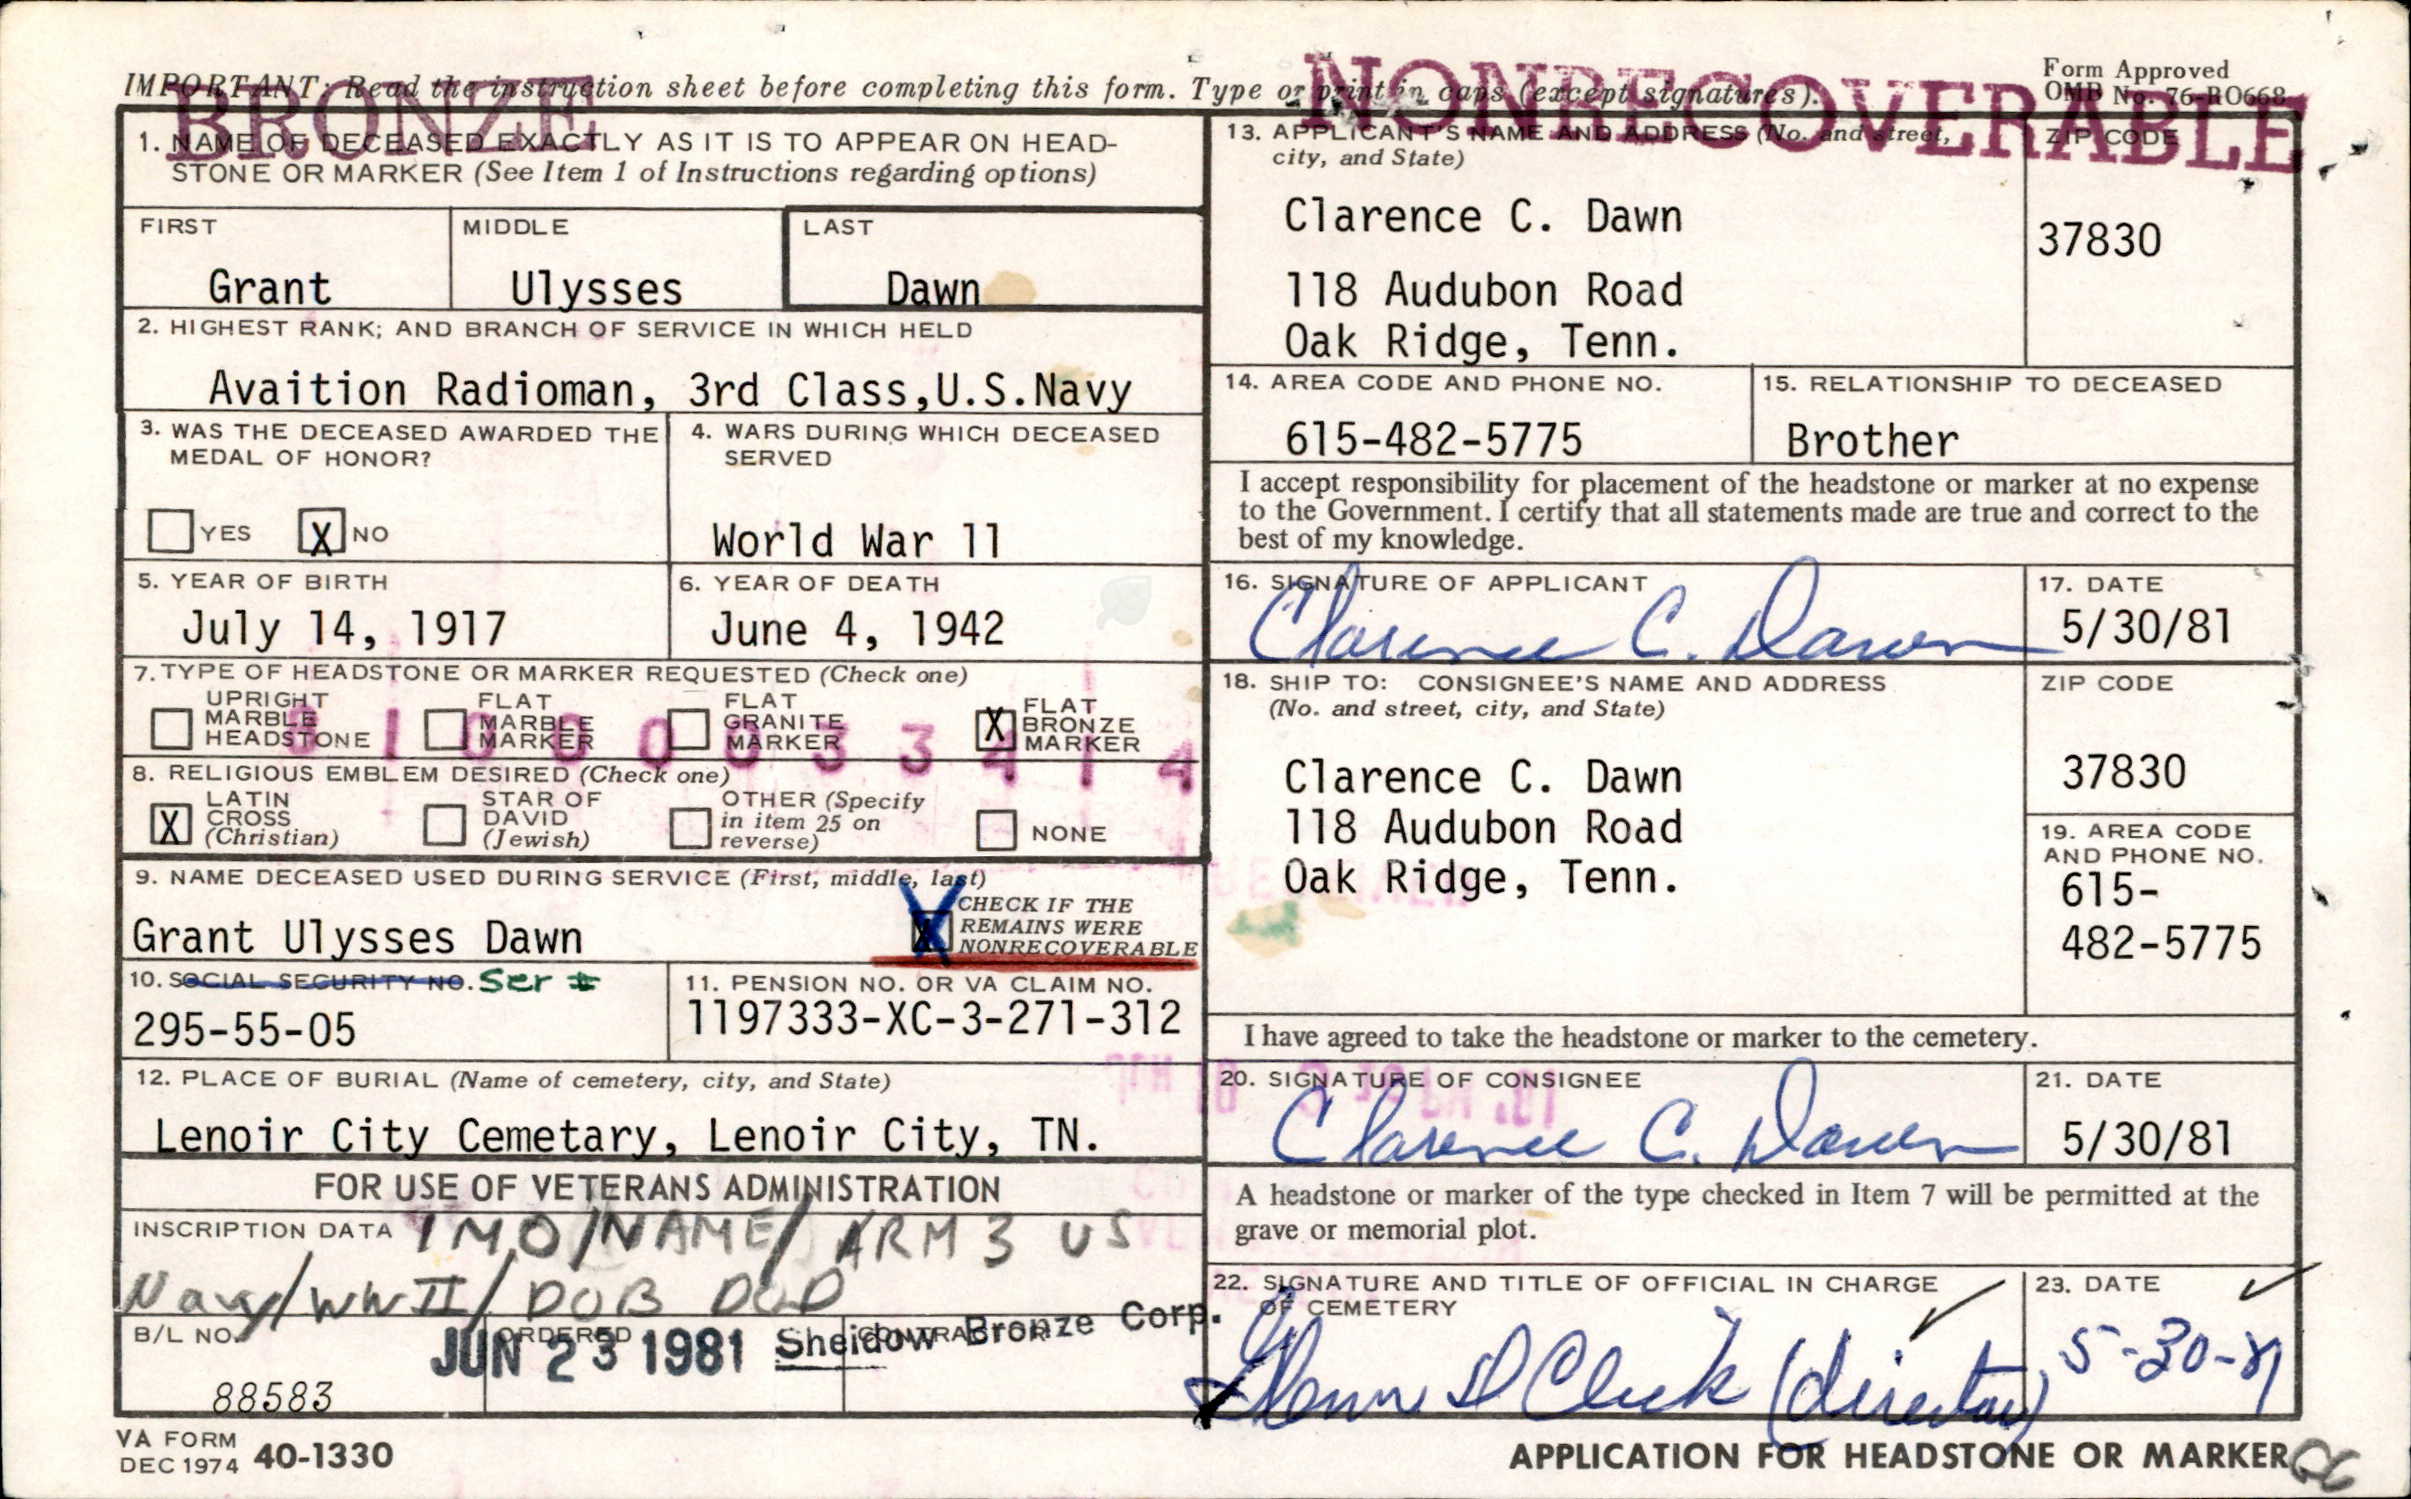 BRONZE
NONRECOVERABLE
IMPORTANT: Read the instruction sheet before completing this form. Type or print in caps (except signatures).
Form Approved
OMB No. 76-RO668
1. NAME OF DECEASED EXACTLY AS IT IS TO APPEAR ON HEAD-
STONE OR MARKER (See Item 1 of Instructions regarding options)
FIRST MIDDLE LAST
Grant Ulysses Dawn
2. HIGHEST RANK; AND BRANCH OF SERVICE IN WHICH HELD
Avaition Radioman, 3rd Class,U.S.Navy
3. WAS THE DECEASED AWARDED THE
MEDAL OF HONOR?
YES X NO
4. WARS DURING WHICH DECEASED
SERVED
World War 11
5. YEAR OF BIRTH
July 14, 1917
6. YEAR OF DEATH
June 4, 1942
7. TYPE OF HEADSTONE OR MARKER REQUESTED (Check one)
UPRIGHT
MARBLE
HEADSTONE
FLAT
MARBLE
MARKER
FLAT
GRANITE
MARKER
X FLAT
BRONZE
MARKER
8 1 0 0 0 3 3 4 1 4
8. RELIGIOUS EMBLEM DESIRED (Check one)
X LATIN
CROSS
(Christian)
STAR OF
DAVID
(Jewish)
OTHER (Specify
in item 25 on
reverse)
NONE
9. NAME DECEASED USED DURING SERVICE (First, middle, last)
Grant Ulysses Dawn
X CHECK IF THE
REMAINS WERE
NONRECOVERABLE
10. SOCIAL SECURITY NO. Ser #
295-55-05
11. PENSION NO. OR VA CLAIM NO.
1197333-XC-3-271-312
12. PLACE OF BURIAL (Name of cemetery, city, and State)
Lenoir City Cemetary, Lenoir City, TN.
FOR USE OF VETERANS ADMINISTRATION
INSCRIPTION DATA IMO/NAME/ ARM 3 US
Navy/WW II/ DOB DOD
B/L NO. ORDERED CONTRACTOR
88583
JUN 23 1981
Sheidow Bronze Corp.
13. APPLICANT'S NAME AND ADDRESS (No. and street,
city, and State)
ZIP CODE
Clarence C. Dawn
37830
118 Audubon Road
Oak Ridge, Tenn.
14. AREA CODE AND PHONE NO.
615-482-5775
15. RELATIONSHIP TO DECEASED
Brother
I accept responsibility for placement of the headstone or marker at no expense
to the Government. I certify that all statements made are true and correct to the
best of my knowledge.
16. SIGNATURE OF APPLICANT
Clarence C. Dawn
17. DATE
5/30/81
18. SHIP TO: CONSIGNEE'S NAME AND ADDRESS
(No. and street, city, and State)
ZIP CODE
Clarence C. Dawn
118 Audubon Road
Oak Ridge, Tenn.
37830
19. AREA CODE
AND PHONE NO.
615-
482-5775
I have agreed to take the headstone or marker to the cemetery.
20. SIGNATURE OF CONSIGNEE
Clarence C. Dawn
21. DATE
5/30/81
A headstone or marker of the type checked in Item 7 will be permitted at the
grave or memorial plot.
22. SIGNATURE AND TITLE OF OFFICIAL IN CHARGE
OF CEMETERY
Glenn D Click (director)
23. DATE
5-30-81
VA FORM
DEC 1974 40-1330
APPLICATION FOR HEADSTONE OR MARKER